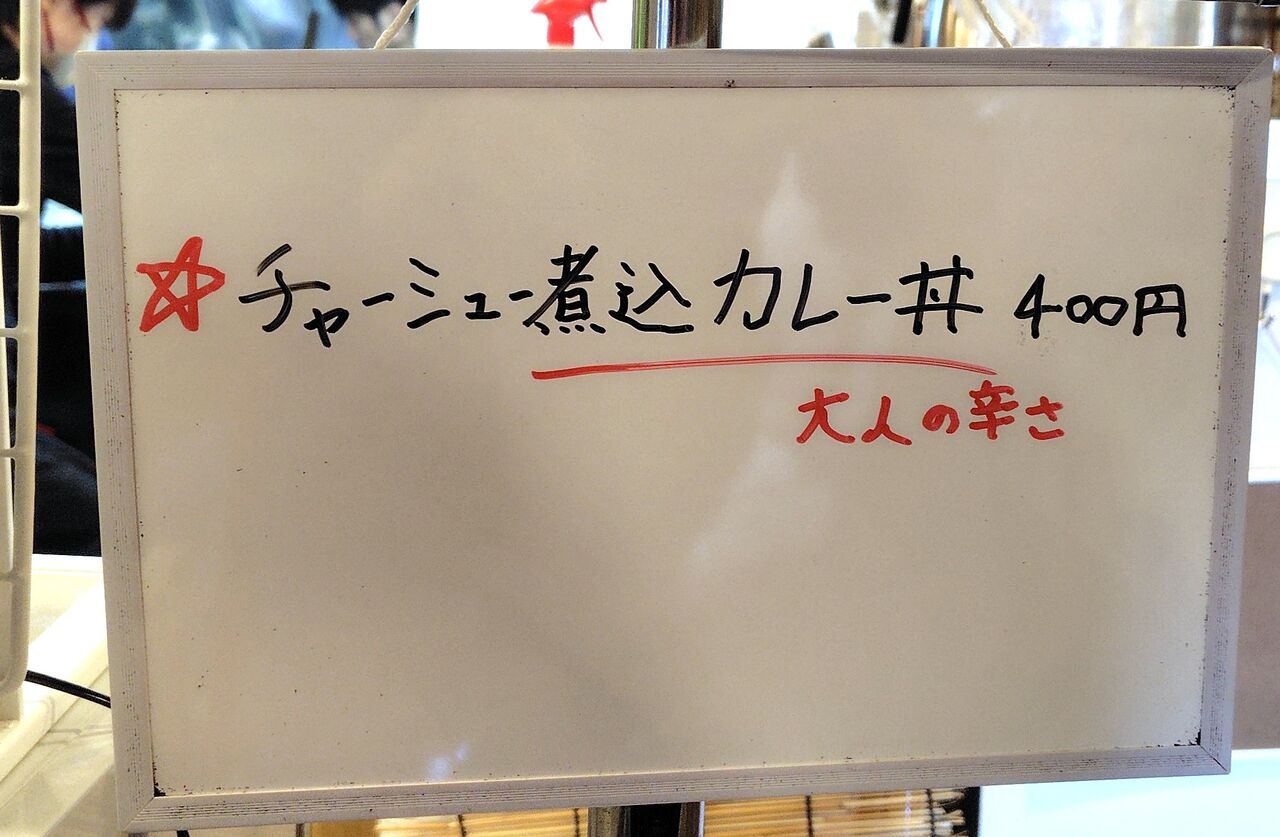 ☆チャーシュー煮込カレー丼 400円
大人の辛さ